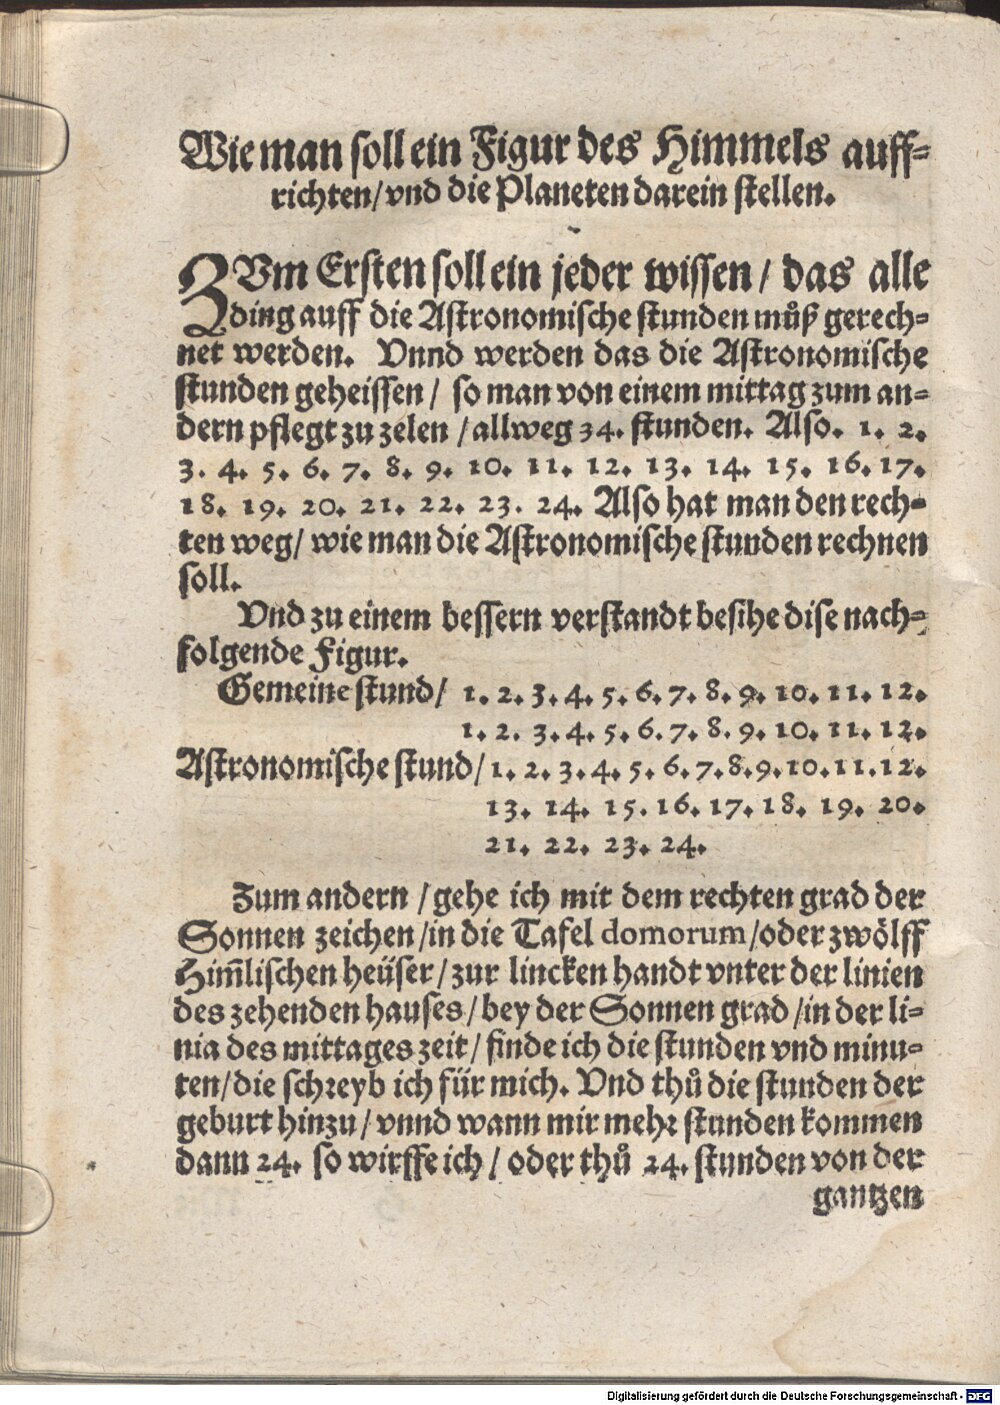 Wie man soll ein Figur des Himmels auff⸗
richten/ vnd die Planeten darein stellen.
ZVm Ersten soll ein jeder wissen / das alle
ding auff die Astronomische stunden můß gerech⸗
net werden. Vnnd werden das die Astronomische
stunden geheissen / so man von einem mittag zum an⸗
dern pflegt zu zelen / allweg 34. stunden. Also. 1. 2.
3. 4. 5. 6. 7. 8. 9. 10. 11. 12. 13. 14. 15. 16. 17.
18. 19. 20. 21. 22. 23. 24. Also hat man den rech⸗
ten weg/ wie man die Astronomische stunden rechnen
soll.
Vnd zu einem bessern verstandt besihe dise nach⸗
folgende Figur.
Gemeine stund/ 1. 2. 3. 4. 5. 6. 7. 8. 9. 10. 11. 12.
1. 2. 3. 4. 5. 6. 7. 8. 9. 10. 11. 12.
Astronomische stund/ 1. 2. 3. 4. 5. 6. 7. 8. 9. 10. 11. 12.
13. 14. 15. 16. 17. 18. 19. 20.
21. 22. 23. 24.
Zum andern / gehe ich mit dem rechten grad der
Sonnen zeichen / in die Tafel domorum / oder zwölff
Him̃lischen heüser / zur lincken handt vnter der linien
des zehenden hauses / bey der Sonnen grad / in der li⸗
nia des mittages zeit / finde ich die stunden vnd minu⸗
ten / die schreyb ich für mich. Vnd thů die stunden der
geburt hinzu / vnnd wann mir mehr stunden kommen
dann 24. so wirffe ich / oder thů 24. stunden von der
gantzen
Digitalisierung gefördert durch die Deutsche Forschungsgemeinschaft - DFG